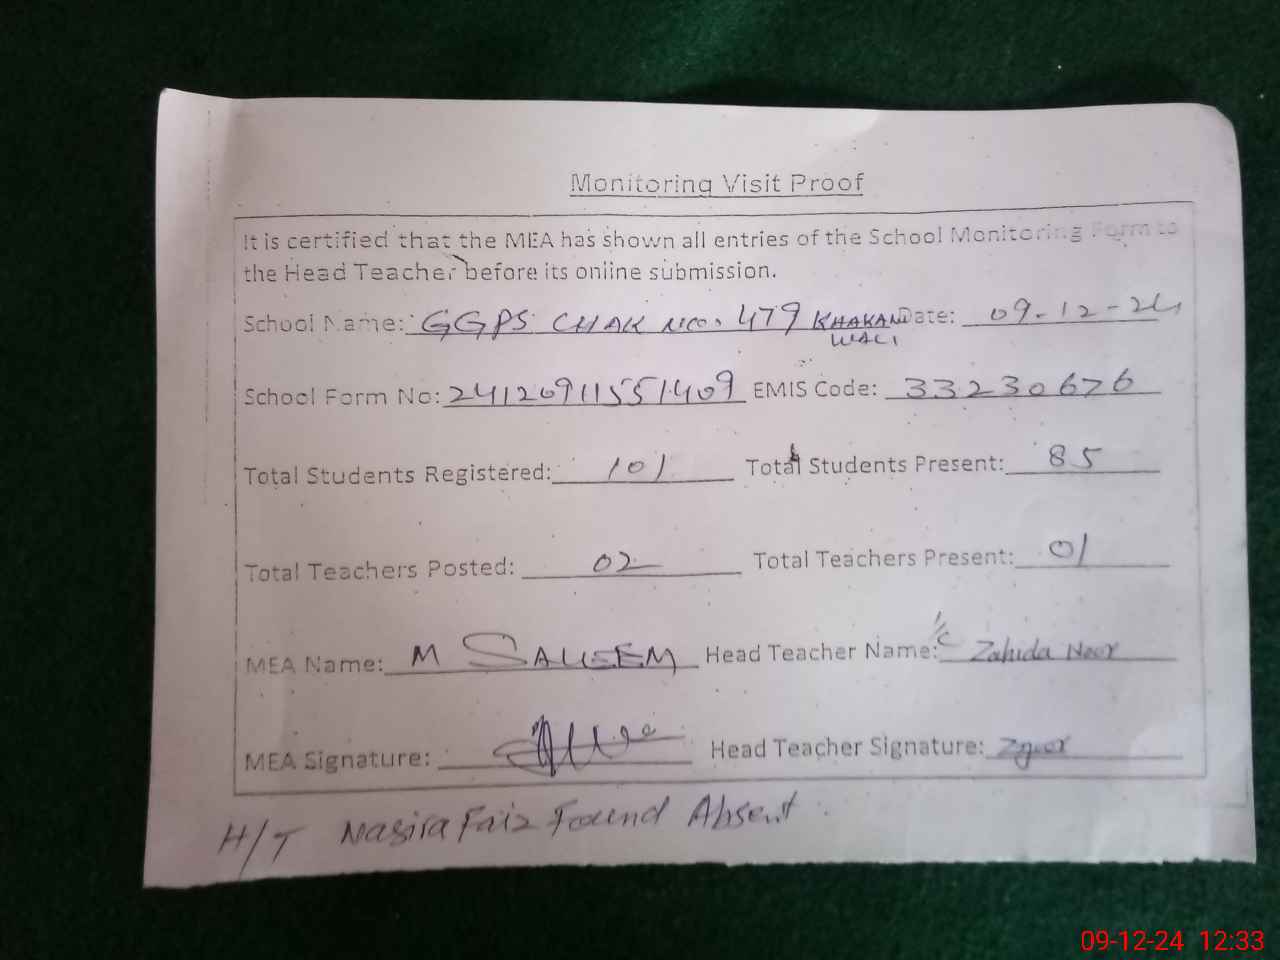 Monitoring Visit Proof
It is certified that the MEA has shown all entries of the School Monitoring Form to
the Head Teacher before its online submission.
School Name: GGPS CHAK NO. 479 KHAKAN Date: 09-12-24
WALI
School Form No: 24120911551409 EMIS Code: 33230676
Total Students Registered: 101 Total Students Present: 85
Total Teachers Posted: 02 Total Teachers Present: 01
MEA Name: M SALEEM Head Teacher Name: I/C Zahida Noor
MEA Signature: Head Teacher Signature:
H/T Nasira Faiz Found Absent.
09-12-24 12:33